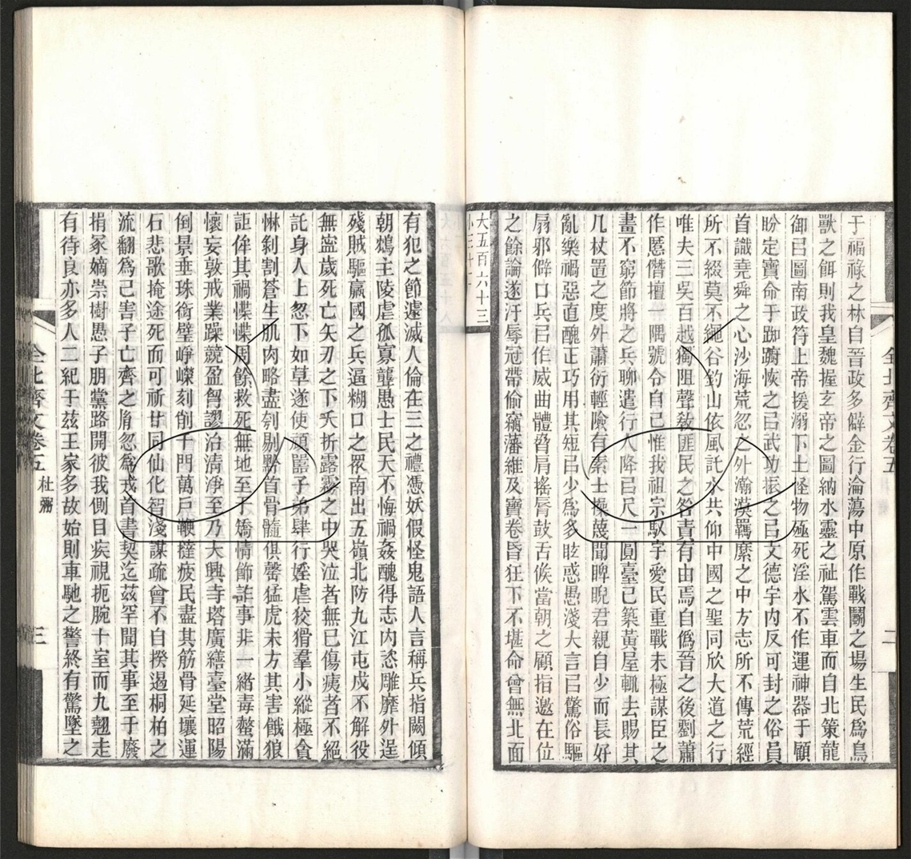 于福祿之林自晉政多僻金行淪蕩中原作戰鬭之場生民爲鳥
獸之餌則我皇魏握玄帝之圖納水靈之祉駕雲車而自北策龍
御㠯圖南政符上帝援溺下土怪物極死淫水不作運神器于顧
盼定寶命于踟蹰恢之㠯武功振之㠯文德宇內反可封之俗員
首識堯舜之心沙海荒忽之外瀚漠羈縻之中方志所不傳荒經
所不綴莫不繩谷釣山依風託水共仰中國之聖同欣大道之行
唯夫三吳百越獨阻聲敎匪民之咎責有由焉自僞晉之後劉蕭
作慝僭擅一隅號令自己惟我祖宗馭宇愛民重戰未極謀臣之
畫不窮節將之兵聊遣行人降㠯尺一圓臺已築黃屋輒去賜其
几杖置之度外蕭衍輕險有素士操蔑聞睥睨君親自少而長好
亂樂禍惡直醜正巧用其短㠯少爲多眩惑愚淺大言㠯驚俗驅
扇邪僻口兵㠯作威曲體脅肩搖脣鼓舌候當朝之顧指邀在位
之餘論遂汙辱冠帶偷竊藩維及寶卷昏狂下不堪命曾無北面
大五百六十三
全北齊文卷五
二
有犯之節遽滅人倫在三之禮憑妖假怪鬼語人言稱兵指闕傾
朝鴆主陵虐孤寡聾愚士民天不悔禍姦醜得志內恣雕靡外逞
殘賊驅羸國之兵逼糊口之眾南出五嶺北防九江屯戍不解役
無寧歲死亡矢刃之下夭折霧露之中哭泣者無已傷痍者不絕
託身人上忽下如草遂使頑嚚子弟肆行婬虐狡猾羣小縱極貪
惏剝割蒼生肌肉略盡刳剔黔首骨髓俱罄猛虎未方其害餓狼
詎侔其禍惵惵周餘救死無地至于矯情飾詐事非一緒毒螫滿
懷妄敦戒業躁競盈胷謬治清淨至乃大興寺塔廣繕臺堂昭陽
倒景垂珠銜璧崢嶸刻削千門萬戶鞭撻疲民盡其筋骨延壤運
石悲歌掩途死而可祈甘同仙化智淺謀疏會不自揆遏桐柏之
流翻爲己害子亡齊之胤忽爲戎首書契迄茲罕聞其事至于廢
捐冢嫡崇樹愚子朋黨路開彼我側目疾視扼腕十室而九翹走
有待良亦多人二紀于茲王家多故始則車馳之警終有驚墜之
全北齊文卷五
杜弼
三